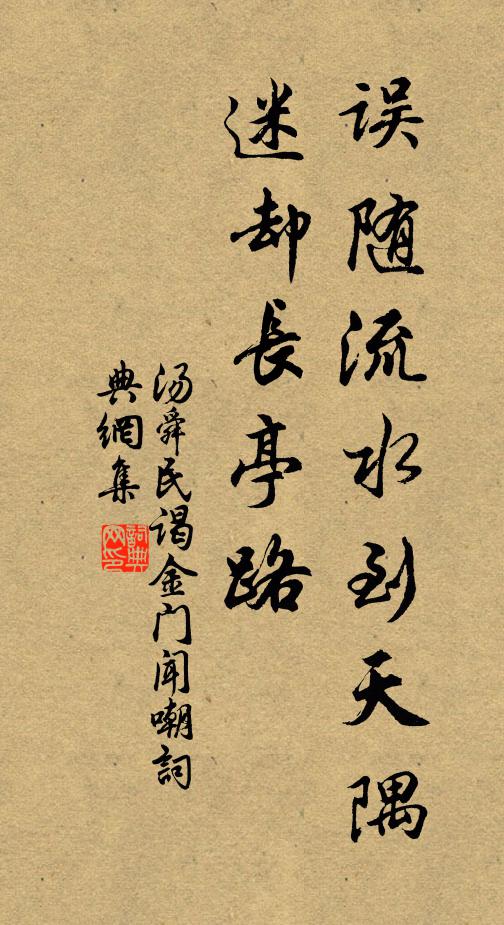 误随流水到天隅
迷却長亭路
汤舜民谒金门闻嘲詞
典網集
詞典網印